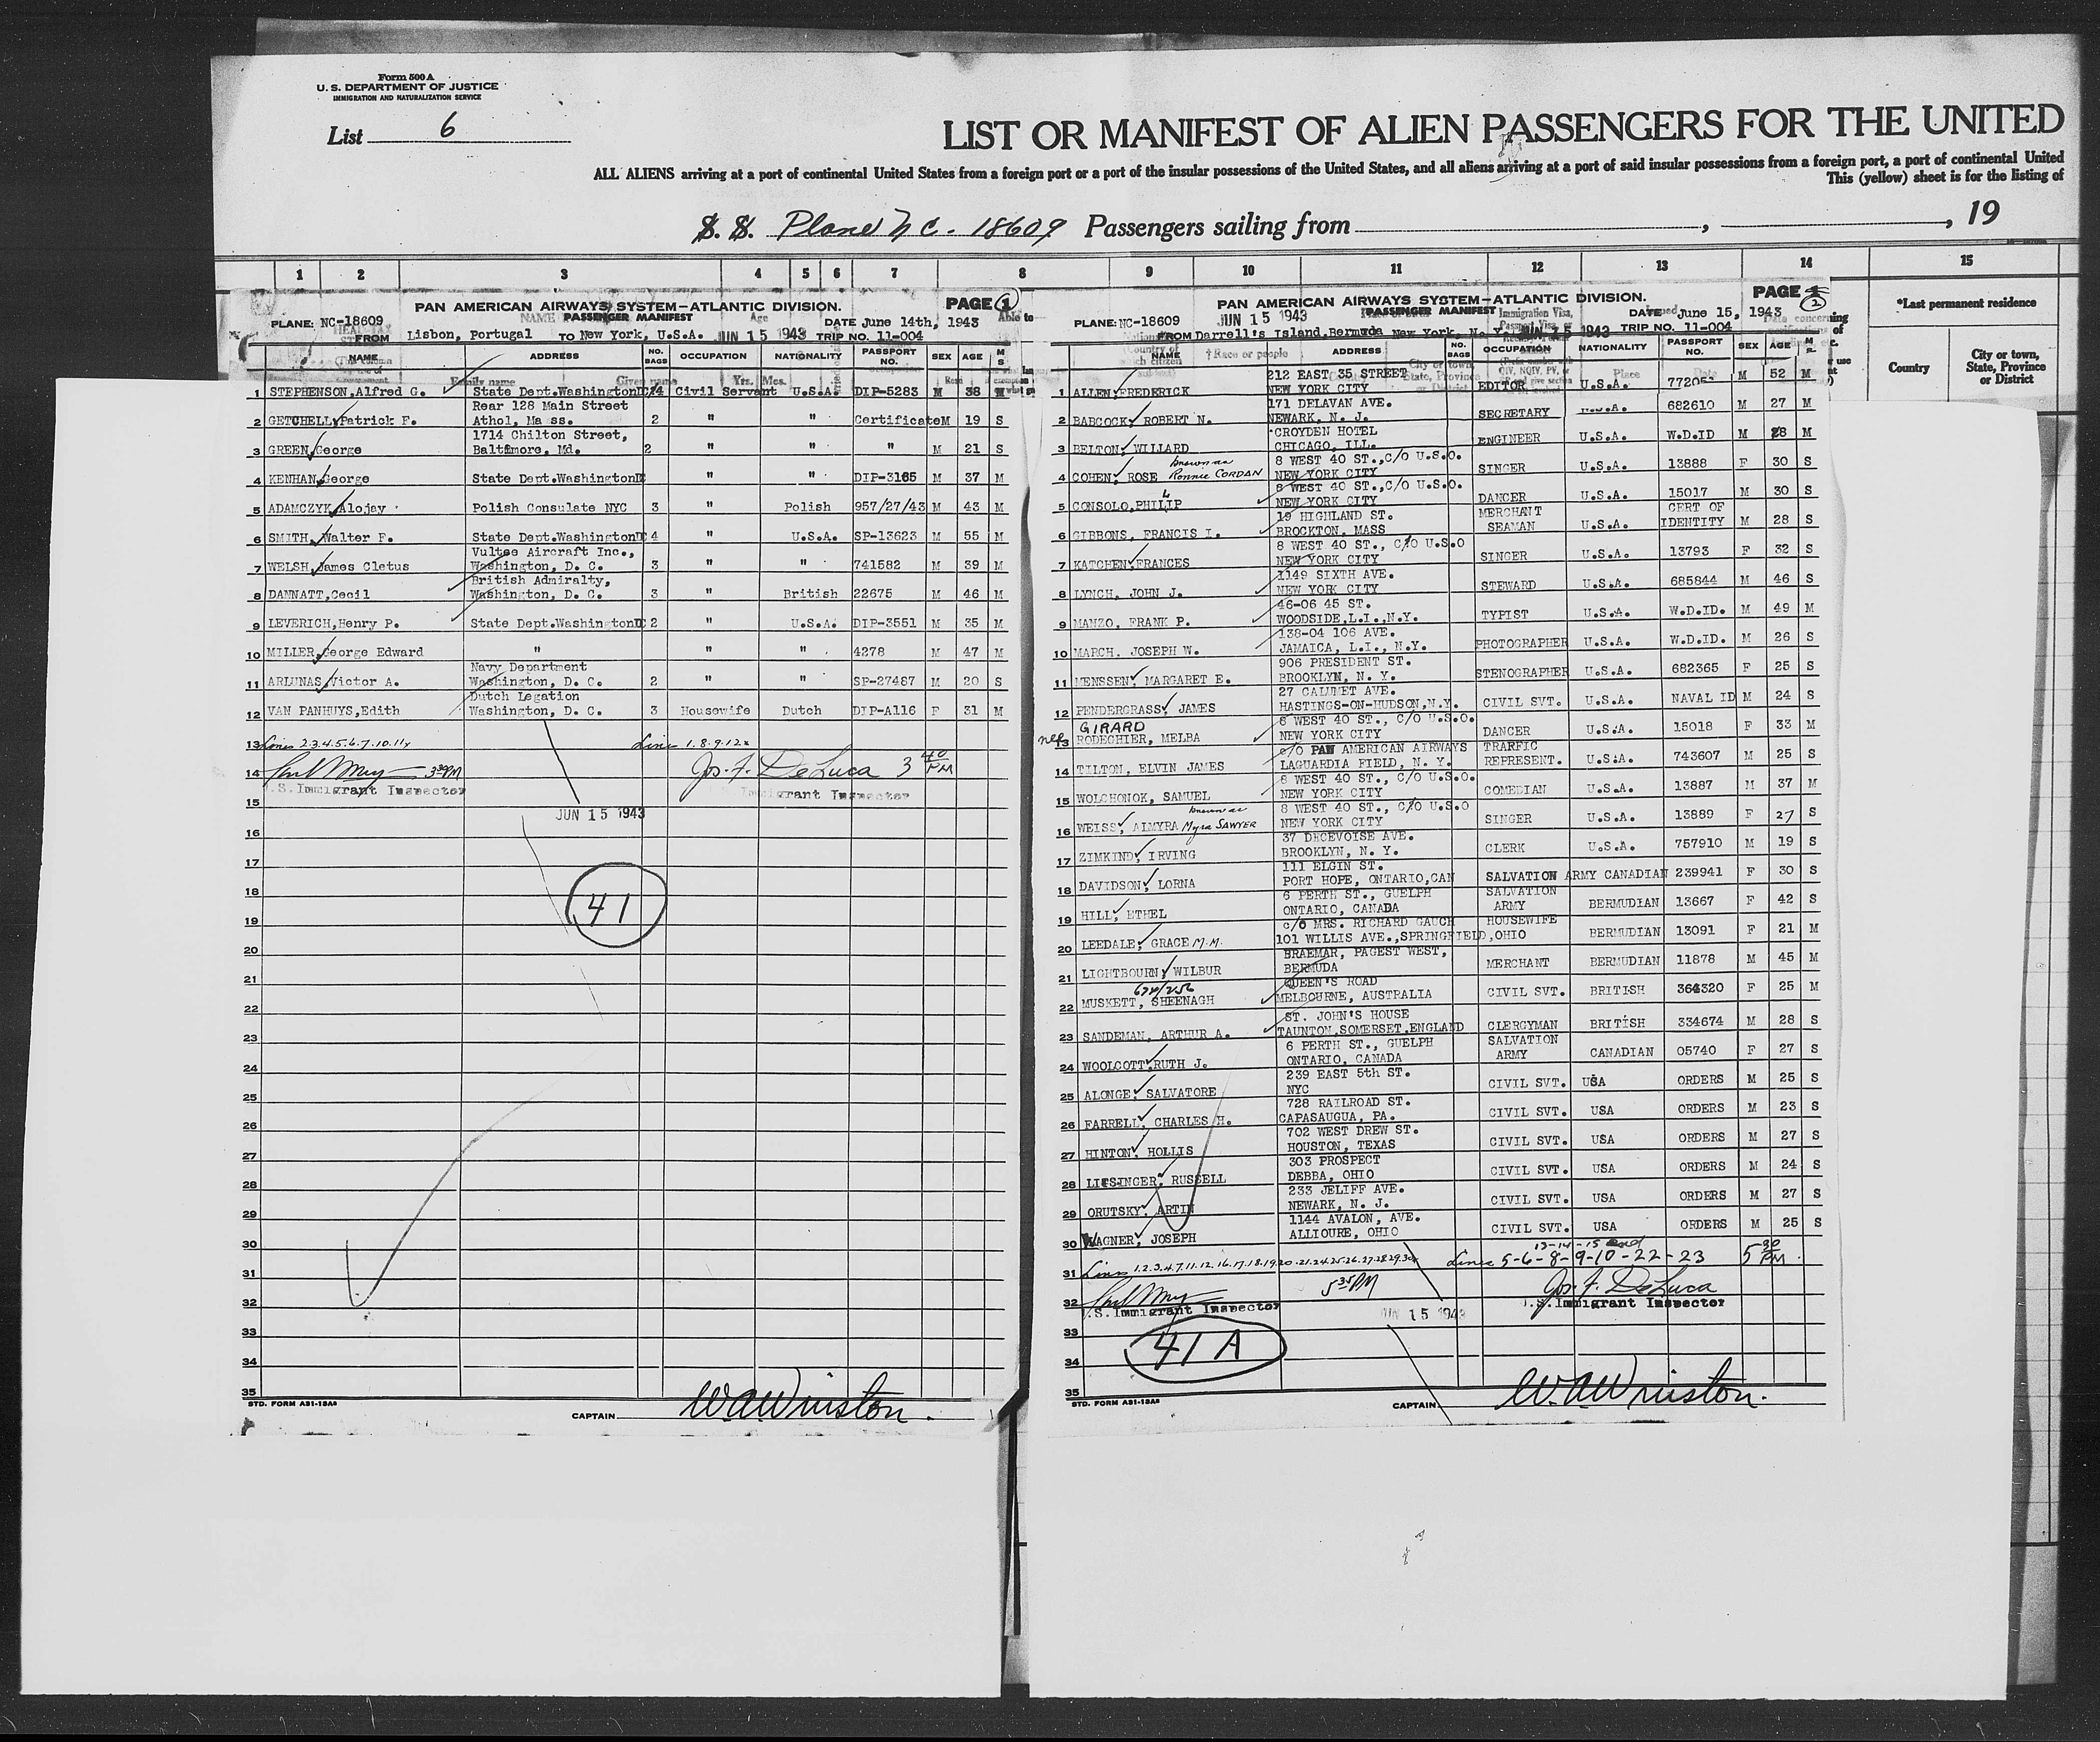 Form 500 A
U. S. DEPARTMENT OF JUSTICE
IMMIGRATION AND NATURALIZATION SERVICE
List 6
LIST OR MANIFEST OF ALIEN PASSENGERS FOR THE UNITED
ALL ALIENS arriving at a port of continental United States from a foreign port or a port of the insular possessions of the United States, and all aliens arriving at a port of said insular possessions from a foreign port, a port of continental United
This (yellow) sheet is for the listing of
S. S. Plane NC-18609 Passengers sailing from , , 19
1 2 3 4 5 6 7 8 9 10 11 12 13 14 15
*Last permanent residence
Country
City or town, State, Province or District
PAN AMERICAN AIRWAYS SYSTEM—ATLANTIC DIVISION. PAGE 1
PLANE: NC-18609 PASSENGER MANIFEST DATE June 14th, 1943
FROM Lisbon, Portugal TO New York, U.S.A. JUN 15 1943 TRIP NO. 11-004
NAME ADDRESS NO. BAGS OCCUPATION NATIONALITY PASSPORT NO. SEX AGE M S
1 STEPHENSON, Alfred G. State Dept.Washington 4 Civil Servant U.S.A. DIP-5283 M 38 M
2 GETCHELL, Patrick F. Rear 128 Main Street Athol, Ma ss. 2 " " Certificate M 19 S
3 GREEN, George 1714 Chilton Street, Baltimore, Md. 2 " " " M 21 S
4 KENHAN, George State Dept.Washington " " DIP-3165 M 37 M
5 ADAMCZYK, Alojay State Polish Consulate NYC 3 " Polish 957/27/43 M 43 M
6 SMITH, Walter F. State Dept.Washington 4 " U.S.A. SP-13623 M 55 M
7 WELSH, James Cletus Vultee Aircraft Inc., Washington, D. C. 3 " " 741582 M 39 M
8 DANNATT, Cecil British Admiralty, Washington, D. C. 3 " British 22675 M 46 M
9 LEVERICH, Henry P. State Dept.Washington 2 " U.S.A. DIP-3551 M 35 M
10 MILLER, George Edward " " " 4278 M 47 M
11 ARLUNAS, Victor A. Navy Department Washington, D. C. 2 " " SP-27487 M 20 S
12 VAN PANHUYS, Edith Dutch Legation Washington, D. C. 3 Housewife Dutch DIP-A116 F 31 M
13 Lines 2.3.4.5.6.7.10.11 Line 1.8.9.12
14 3 30 PM Jos. F. DeLuca 3 40 PM
U.S. Immigrant Inspector Immigrant Inspector
15 JUN 15 1943
16
17
18 41
19
20
21
22
23
24
25
26
27
28
29
30
31
32
33
34
35
STD. FORM A31-13A
CAPTAIN W.A.Winston.
PAN AMERICAN AIRWAYS SYSTEM—ATLANTIC DIVISION. PAGE 2
PLANE: NC-18609 JUN 15 1943 PASSENGER MANIFEST DATE June 15, 1943
FROM Darrell's Island, Bermuda New York, N. Y. TRIP NO. 11-004
NAME ADDRESS NO. BAGS OCCUPATION NATIONALITY PASSPORT NO. SEX AGE
1 ALLEN, FREDERICK 212 EAST 35 STREET NEW YORK CITY EDITOR U.S.A. M 52 M
2 BABCOCK, ROBERT N. 171 DELAVAN AVE. NEWARK, N. J. SECRETARY U.S.A. 682610 M 27 M
3 BELTON, WILLARD CROYDEN HOTEL CHICAGO, ILL. ENGINEER U.S.A. W.D.ID M 28 M
4 COHEN, ROSE known as Ronnie CORDAN 8 WEST 40 ST.,C/O U.S.O. NEW YORK CITY SINGER U.S.A. 13888 F 30 S
5 CONSOLO, PHILIP 8 WEST 40 ST.,C/O U.S.O. NEW YORK CITY DANCER U.S.A. 15017 M 30 S
6 GIBBONS, FRANCIS I. 19 HIGHLAND ST. BROCKTON, MASS MERCHANT SEAMAN U.S.A. CERT OF IDENTITY M 28 S
7 KATCHEN, FRANCES 8 WEST 40 ST., C/O U.S.O NEW YORK CITY SINGER U.S.A. 13793 F 32 S
8 LYNCH, JOHN J. 1149 SIXTH AVE. NEW YORK CITY STEWARD U.S.A. 685844 M 46 S
9 MANZO, FRANK P. 46-06 45 ST. WOODSIDE,L.I.,N.Y. TYPIST U.S.A. W.D.ID. M 49 M
10 MARCH, JOSEPH W. 138-04 106 AVE. JAMAICA, L.I., N.Y. PHOTOGRAPHER U.S.A. W.D.ID. M 26 S
11 MENSSEN, MARGARET E. 906 PRESIDENT ST. BROOKLYN, N. Y. STENOGRAPHER U.S.A. 682365 F 25 S
12 PENDERGRASS, JAMES 27 CALUMET AVE. HASTINGS-ON-HUDSON,N.Y. CIVIL SVT. U.S.A. NAVAL ID M 24 S
13 nee GIRARD RODEGHIER, MELBA 8 WEST 40 ST., C/O U.S.O. NEW YORK CITY DANCER U.S.A. 15018 F 33 M
14 TILTON, ELVIN JAMES c/o PAN AMERICAN AIRWAYS LAGUARDIA FIELD, N. Y. TRAFFIC REPRESENT. U.S.A. 743607 M 25 S
15 WOLCHONOK, SAMUEL 8 WEST 40 ST., C/O U.S.O. NEW YORK CITY COMEDIAN U.S.A. 13887 M 37 M
16 WEISS, ALMYRA known as Myra SAWYER 8 WEST 40 ST., C/O U.S.O NEW YORK CITY SINGER U.S.A. 13889 F 27 S
17 ZIMKIND, IRVING 37 DECEVOISE AVE. BROOKLYN, N. Y. CLERK U.S.A. 757910 M 19 S
18 DAVIDSON, LORNA 111 ELGIN ST. PORT HOPE, ONTARIO,CAN SALVATION ARMY CANADIAN 239941 F 30 S
19 HILL, ETHEL 6 PERTH ST., GUELPH ONTARIO, CANADA SALVATION ARMY BERMUDIAN 13667 F 42 S
20 LEEDALE, GRACE M.M. c/o MRS. RICHARD GAUCH 101 WILLIS AVE.,SPRINGFIELD,OHIO HOUSEWIFE BERMUDIAN 13091 F 21 M
21 LIGHTBOURN, WILBUR BRAEMAR, PAGEST WEST, BERMUDA MERCHANT BERMUDIAN 11878 M 45 M
22 MUSKETT, SHEENAGH QUEEN'S ROAD MELBOURNE, AUSTRALIA CIVIL SVT. BRITISH 364320 F 25 M
23 SANDEMAN, ARTHUR A. ST. JOHN'S HOUSE TAUNTON,SOMERSET,ENGLAND CLERGYMAN BRITISH 334674 M 28 S
24 WOOLCOTT, RUTH J. 6 PERTH ST., GUELPH ONTARIO, CANADA SALVATION ARMY CANADIAN 05740 F 27 S
25 ALONGE, SALVATORE 239 EAST 5th ST. NYC CIVIL SVT. USA ORDERS M 25 S
26 FARRELL, CHARLES H. 728 RAILROAD ST. CAPASAUGUA, PA. CIVIL SVT. USA ORDERS M 23 S
27 HINTON, HOLLIS 702 WEST DREW ST. HOUSTON, TEXAS CIVIL SVT. USA ORDERS M 27 S
28 LIESINGER, RUSSELL 303 PROSPECT DEBBA, OHIO CIVIL SVT. USA ORDERS M 24 S
29 ORUTSKY, ARTIN 233 JELIFF AVE. NEWARK, N. J. CIVIL SVT. USA ORDERS M 27 S
30 WAGNER, JOSEPH 1144 AVALON, AVE. ALLIOURE, OHIO CIVIL SVT. USA ORDERS M 25 S
31 Lines 1.2.3.4.7.11.12.16.17.18.19.20.21.24.25.26.27.28.29.30 Lines 5-6-8-9-10-22-23 13-14-15 and 5 30 PM
32 5 35 PM Jos. F. DeLuca
U.S. Immigrant Inspector JUN 15 1943 U.S. Immigrant Inspector
33 41 A
34
35
STD. FORM A31-13A
CAPTAIN W.A.Winston.